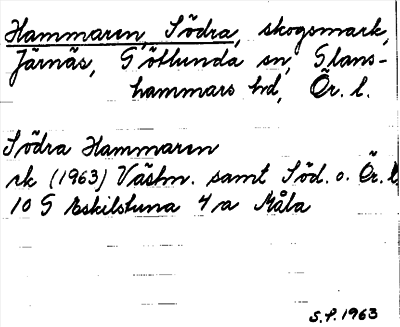 Hammaren, Södra, skogsmark,
Järnäs, Götlunda sn, Glans-
hammars hd, Ör. l.
Södra Hammaren
rk (1963) Västm. samt Söd. o. Ör. l
10 G Eskilstuna 4 a Måla
S.F. 1963